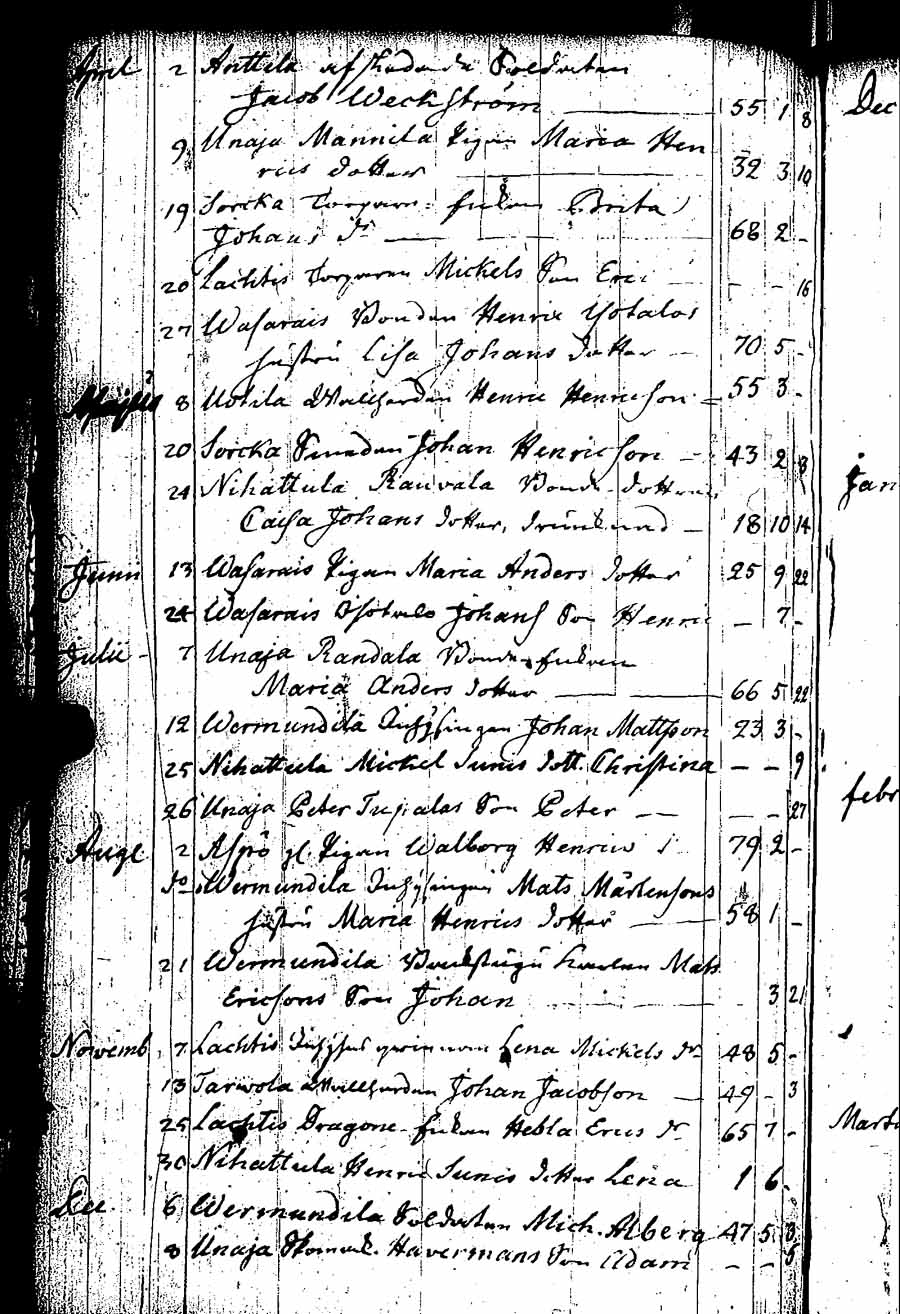 April 2 Anttila afskedade Soldaten
Jacob Weckström 55 1 8
9 Unaja Mannila Pigan Maria Hen
rics dotter 32 3 10
19 Sorcka Torpare Enkan Brita
Johans dr 68 2 -
20 Lachtis Torparen Mickels Son Eric - - 16
27 Wasarais Bonden Henric Yotalas
hustru Lisa Johans dotter 70 5 -
8 Uotila Henric Henricson 55 3 -
20 Sorcka Smeden Johan Henricson 43 2 8
24 Nihattula Rauvala Bonde dottren
Caisa Johans dotter, 18 10 14
Junii 13 Wasarais Pigan Maria Anders dotter 25 9 22
24 Wasarais Johans Son Henric - 7 -
Julii 7 Unaja Randala Bonde Enkan
Maria Anders dotter 66 5 22
12 Wermundila Inhysingen Johan Mattsson 23 3 -
25 Nihattula Mickel Sunis dott. Christina - - 9
26 Unaja Peter Tupalas Son Peter - - 27
Aug 2 Aspö gl. Pigan Walborg Henrics d 79 2 -
do Wermundila Inhysingen Mats Mårtensons
hustru Maria Henrics dotter 58 1 -
21 Wermundila Mats
Ericsons Son Johan 3 21
Novemb. 7 Lachtis Lena Mickels dr 48 5 -
13 Tarvola Johan Jacobson 49 - 3
25 Lachtis Dragone Enkan Hebla Erics dr 65 7 -
30 Nihattula Henric Sunis dotter Lena 1 6 -
Dec 6 Wermundila Soldaten Mich. Alberg 47 5 3
8 Unaja Havermans Son Adam - - 5
Dec
Jan
febr
Marti